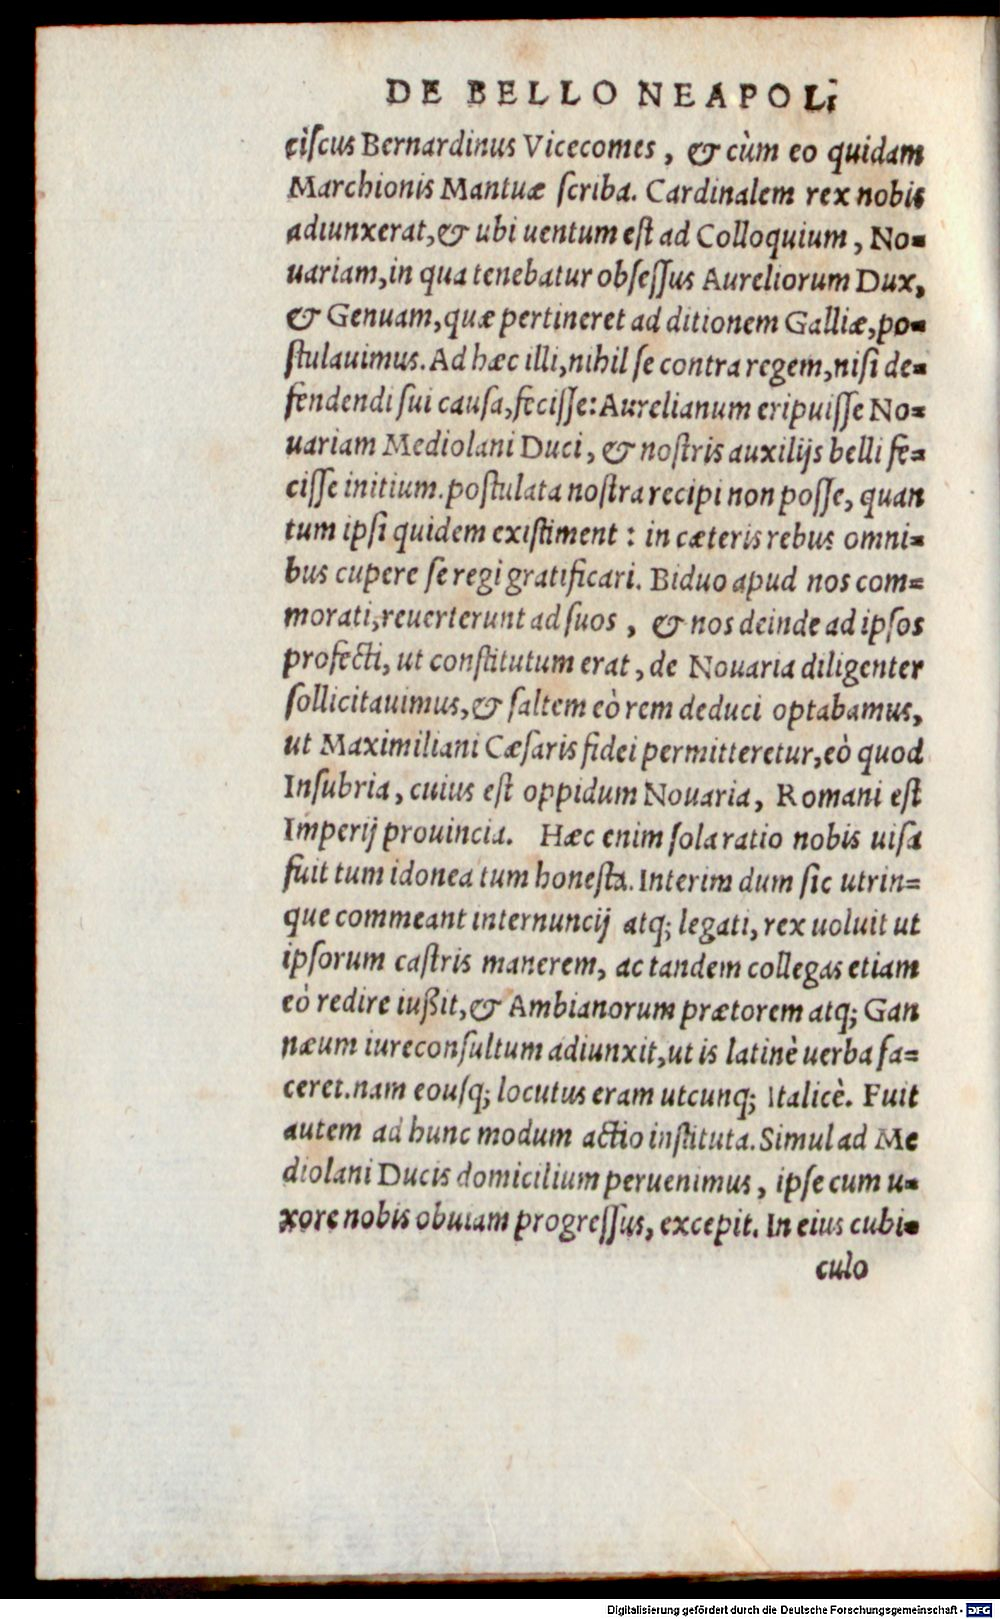 DE BELLO NEAPOLI
ciſcus Bernardinus Vicecomes, & cùm eo quidam
Marchionis Mantuæ ſcriba. Cardinalem rex nobis
adiunxerat,& ubi uentum eſt ad Colloquium, No-
uariam,in qua tenebatur obſeſſus Aureliorum Dux,
& Genuam,quæ pertineret ad ditionem Galliæ,po-
ſtulauimus. Ad hæc illi,nihil ſe contra regem,niſi de-
fendendi ſui cauſa,feciſſe: Aurelianum eripuiſſe No-
uariam Mediolani Duci, & noſtris auxilijs belli fe-
ciſſe initium. poſtulata noſtra recipi non poſſe, quan
tum ipſi quidem exiſtiment : in cæteris rebus omni-
bus cupere ſe regi gratificari. Biduo apud nos com-
morati,reuerterunt ad ſuos , & nos deinde ad ipſos
profecti, ut conſtitutum erat, de Nouaria diligenter
ſollicitauimus,& ſaltem eò rem deduci optabamus,
ut Maximiliani Cæſaris fidei permitteretur,eò quod
Inſubria, cuius eſt oppidum Nouaria, Romani eſt
Imperij prouincia. Hæc enim ſola ratio nobis uiſa
fuit tum idonea tum honeſta. Interim dum ſic utrin-
que commeant internuncij atq; legati, rex uoluit ut
ipſorum caſtris manerem, ac tandem collegas etiam
eò redire iußit,& Ambianorum prætorem atq; Gan
næum iureconſultum adiunxit,ut is latinè uerba fa-
ceret.nam eouſq; locutus eram utcunq; Italicè. Fuit
autem ad hunc modum actio inſtituta. Simul ad Me
diolani Ducis domicilium peruenimus, ipſe cum u-
xore nobis obuiam progreſſus, excepit. In eius cubi-
culo
Digitalisierung gefördert durch die Deutsche Forschungsgemeinschaft - DFG